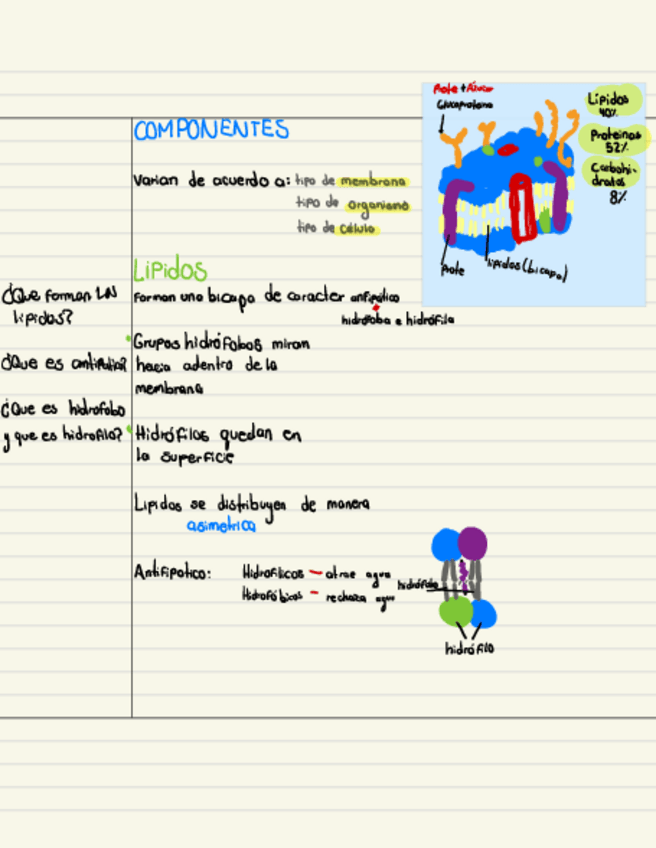 COMPONENTES
Varian de acuerdo a: tipo de membrana
tipo de organismo
tipo de célula
Prote + Azucar
Glucoproteina
Lípidos
40%
Proteinas
52%
Carbohi-
dratos
8%
Prote
lípidos (bicapa)
LÍPIDOS
Forman una bicapa de caracter antipático
hidrófoba e hidrófila
¿Que forman los
lipidos?
Grupos hidrófobos miran
hacia adentro de la
membrana
¿Que es antipatico?
¿Que es hidrofobo
y que es hidrofilo?
Hidrófilos quedan en
la superficie
Lipidos se distribuyen de manera
asimetrica
Antifipatico:
Hidrofílicos - atrae agua
Hidrofóbicos - rechaza agua
hidrófobo
hidrófilo